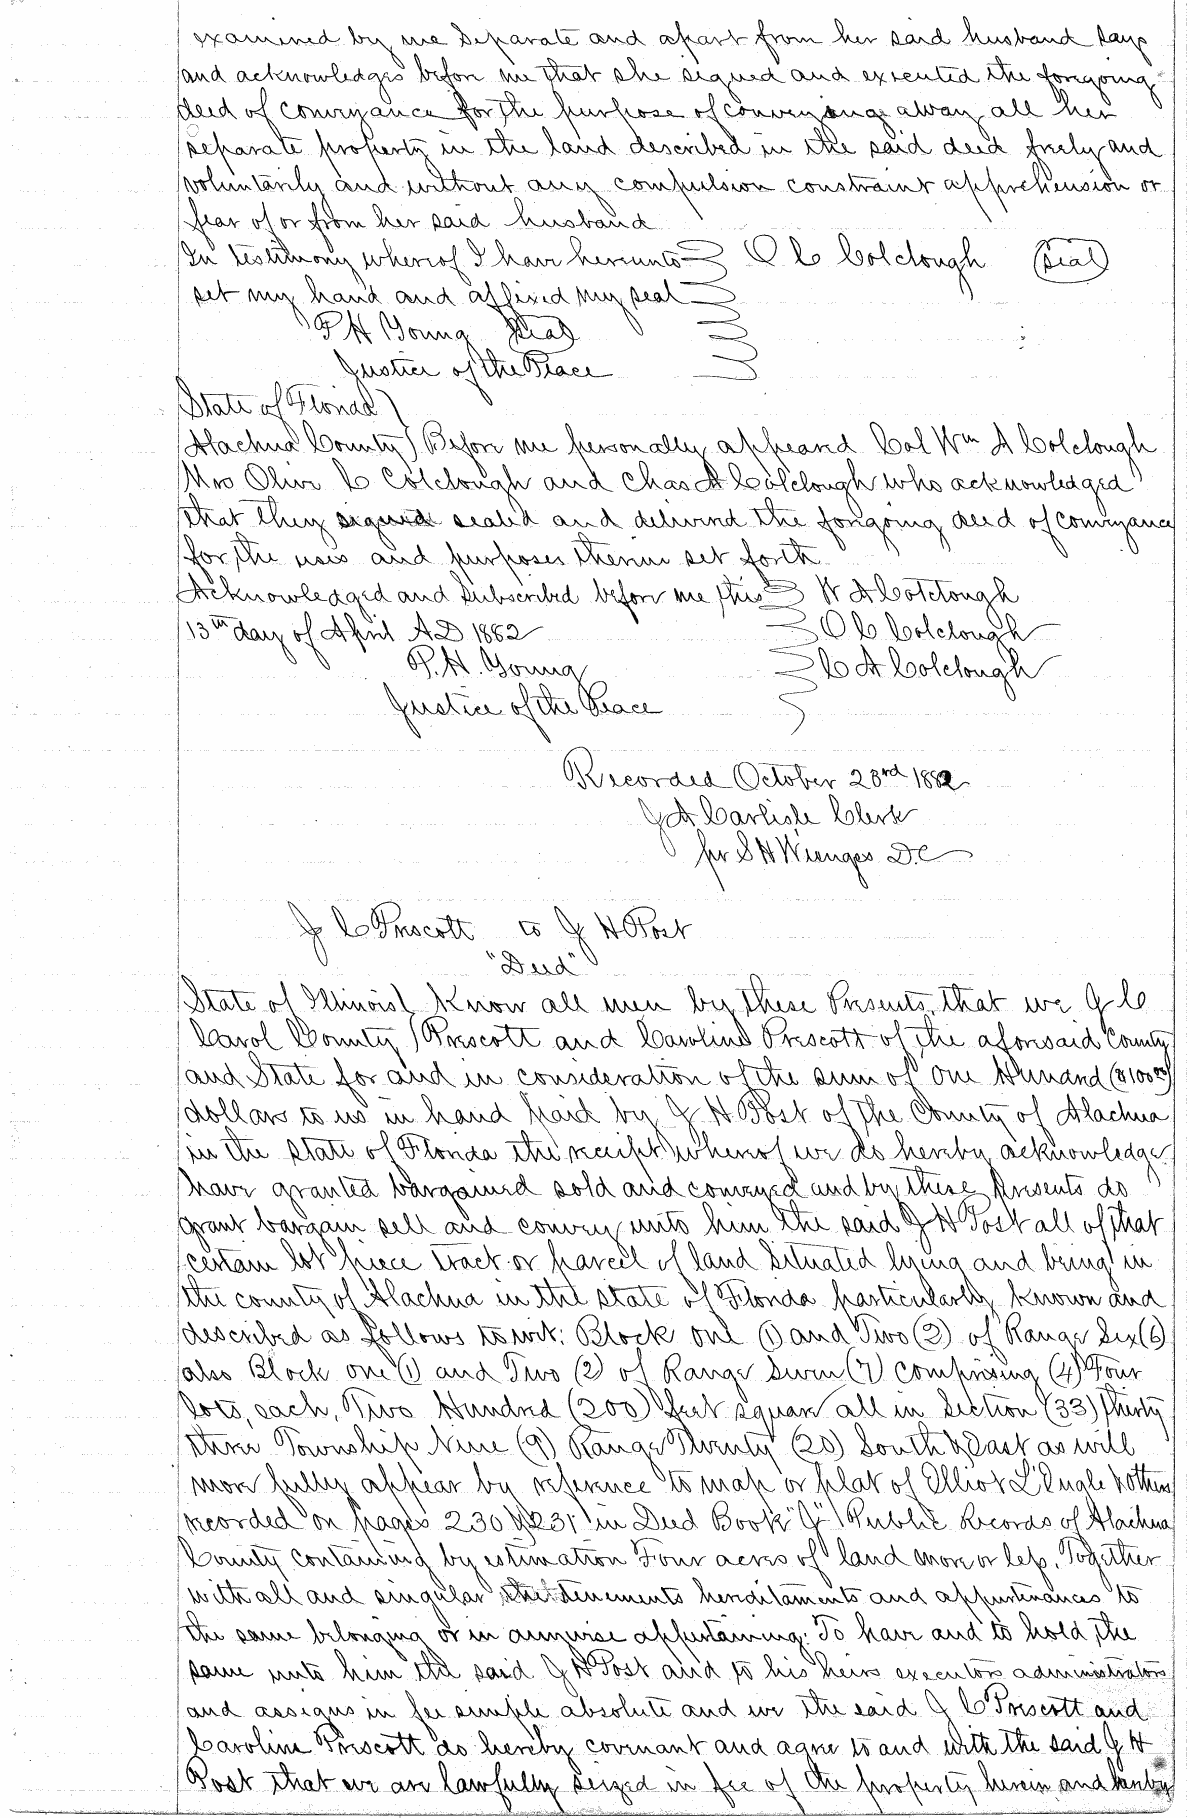 examined by me Separate and apart from her said husband says
and acknowledges before me that she signed and executed the foregoing
deed of conveyance for the purpose of conveying away all her
separate property in the land described in the said deed freely and
voluntarily and without any compulsion constraint apprehension or
fear of or from her said husband
In testimony whereof I have hereunto O C Colclough (Seal)
set my hand and affixed my seal
P H Young (Seal)
Justice of the Peace
State of Florida )
Alachua County ) Before me personally appeared Col Wm A Colclough
Mrs Olive C Colclough and Chas A Colclough who acknowledged
that they signed sealed and delivered the foregoing deed of conveyance
for the uses and purposes therein set forth
Acknowledged and Subscribed before me this W A Colclough
13th day of April AD 1882 O C Colclough
P. H. Young C A Colclough
Justice of the Peace
Recorded October 23rd 1882
J A Carlisle Clerk
per S H Wienges D.C
J C Prescott to J H Post
"Deed"
State of Illinois ) Know all men by these Presents, that we J C
Carol County ) Prescott and Caroline Prescott of the aforesaid County
and State for and in consideration of the sum of One Hundred ($100 00)
dollars to us in hand paid by J H Post of the County of Alachua
in the State of Florida the receipt whereof we do hereby acknowledge
have granted bargained sold and conveyed and by these Presents do
grant bargain sell and convey unto him the said J H Post all of that
certain lot piece tract or parcel of land Situated lying and being in
the county of Alachua in the state of Florida particularly known and
described as follows to wit: Block one (1) and Two (2) of Range Six (6)
also Block one (1) and Two (2) of Range Seven (7) comprising (4) Four
lots, each, Two Hundred (200) feet square all in Section (33) thirty
three Township Nine (9) Range Twenty (20) South & East as will
more fully appear by reference to map or plat of Elliot L'Engle & others
recorded on pages 230 & 231 in Deed Book "J" Public Records of Alachua
County containing by estimation Four acres of land more or less. Together
with all and singular the tenements hereditaments and appurtenances to
the same belonging or in anywise appertaining: To have and to hold, the
same unto him the said J H Post and to his heirs executors administrators
and assigns in fee simple absolute and we the said J C Prescott and
Caroline Prescott do hereby covenant and agree to and with the said J H
Post that we are lawfully seized in fee of the property herein and hereby